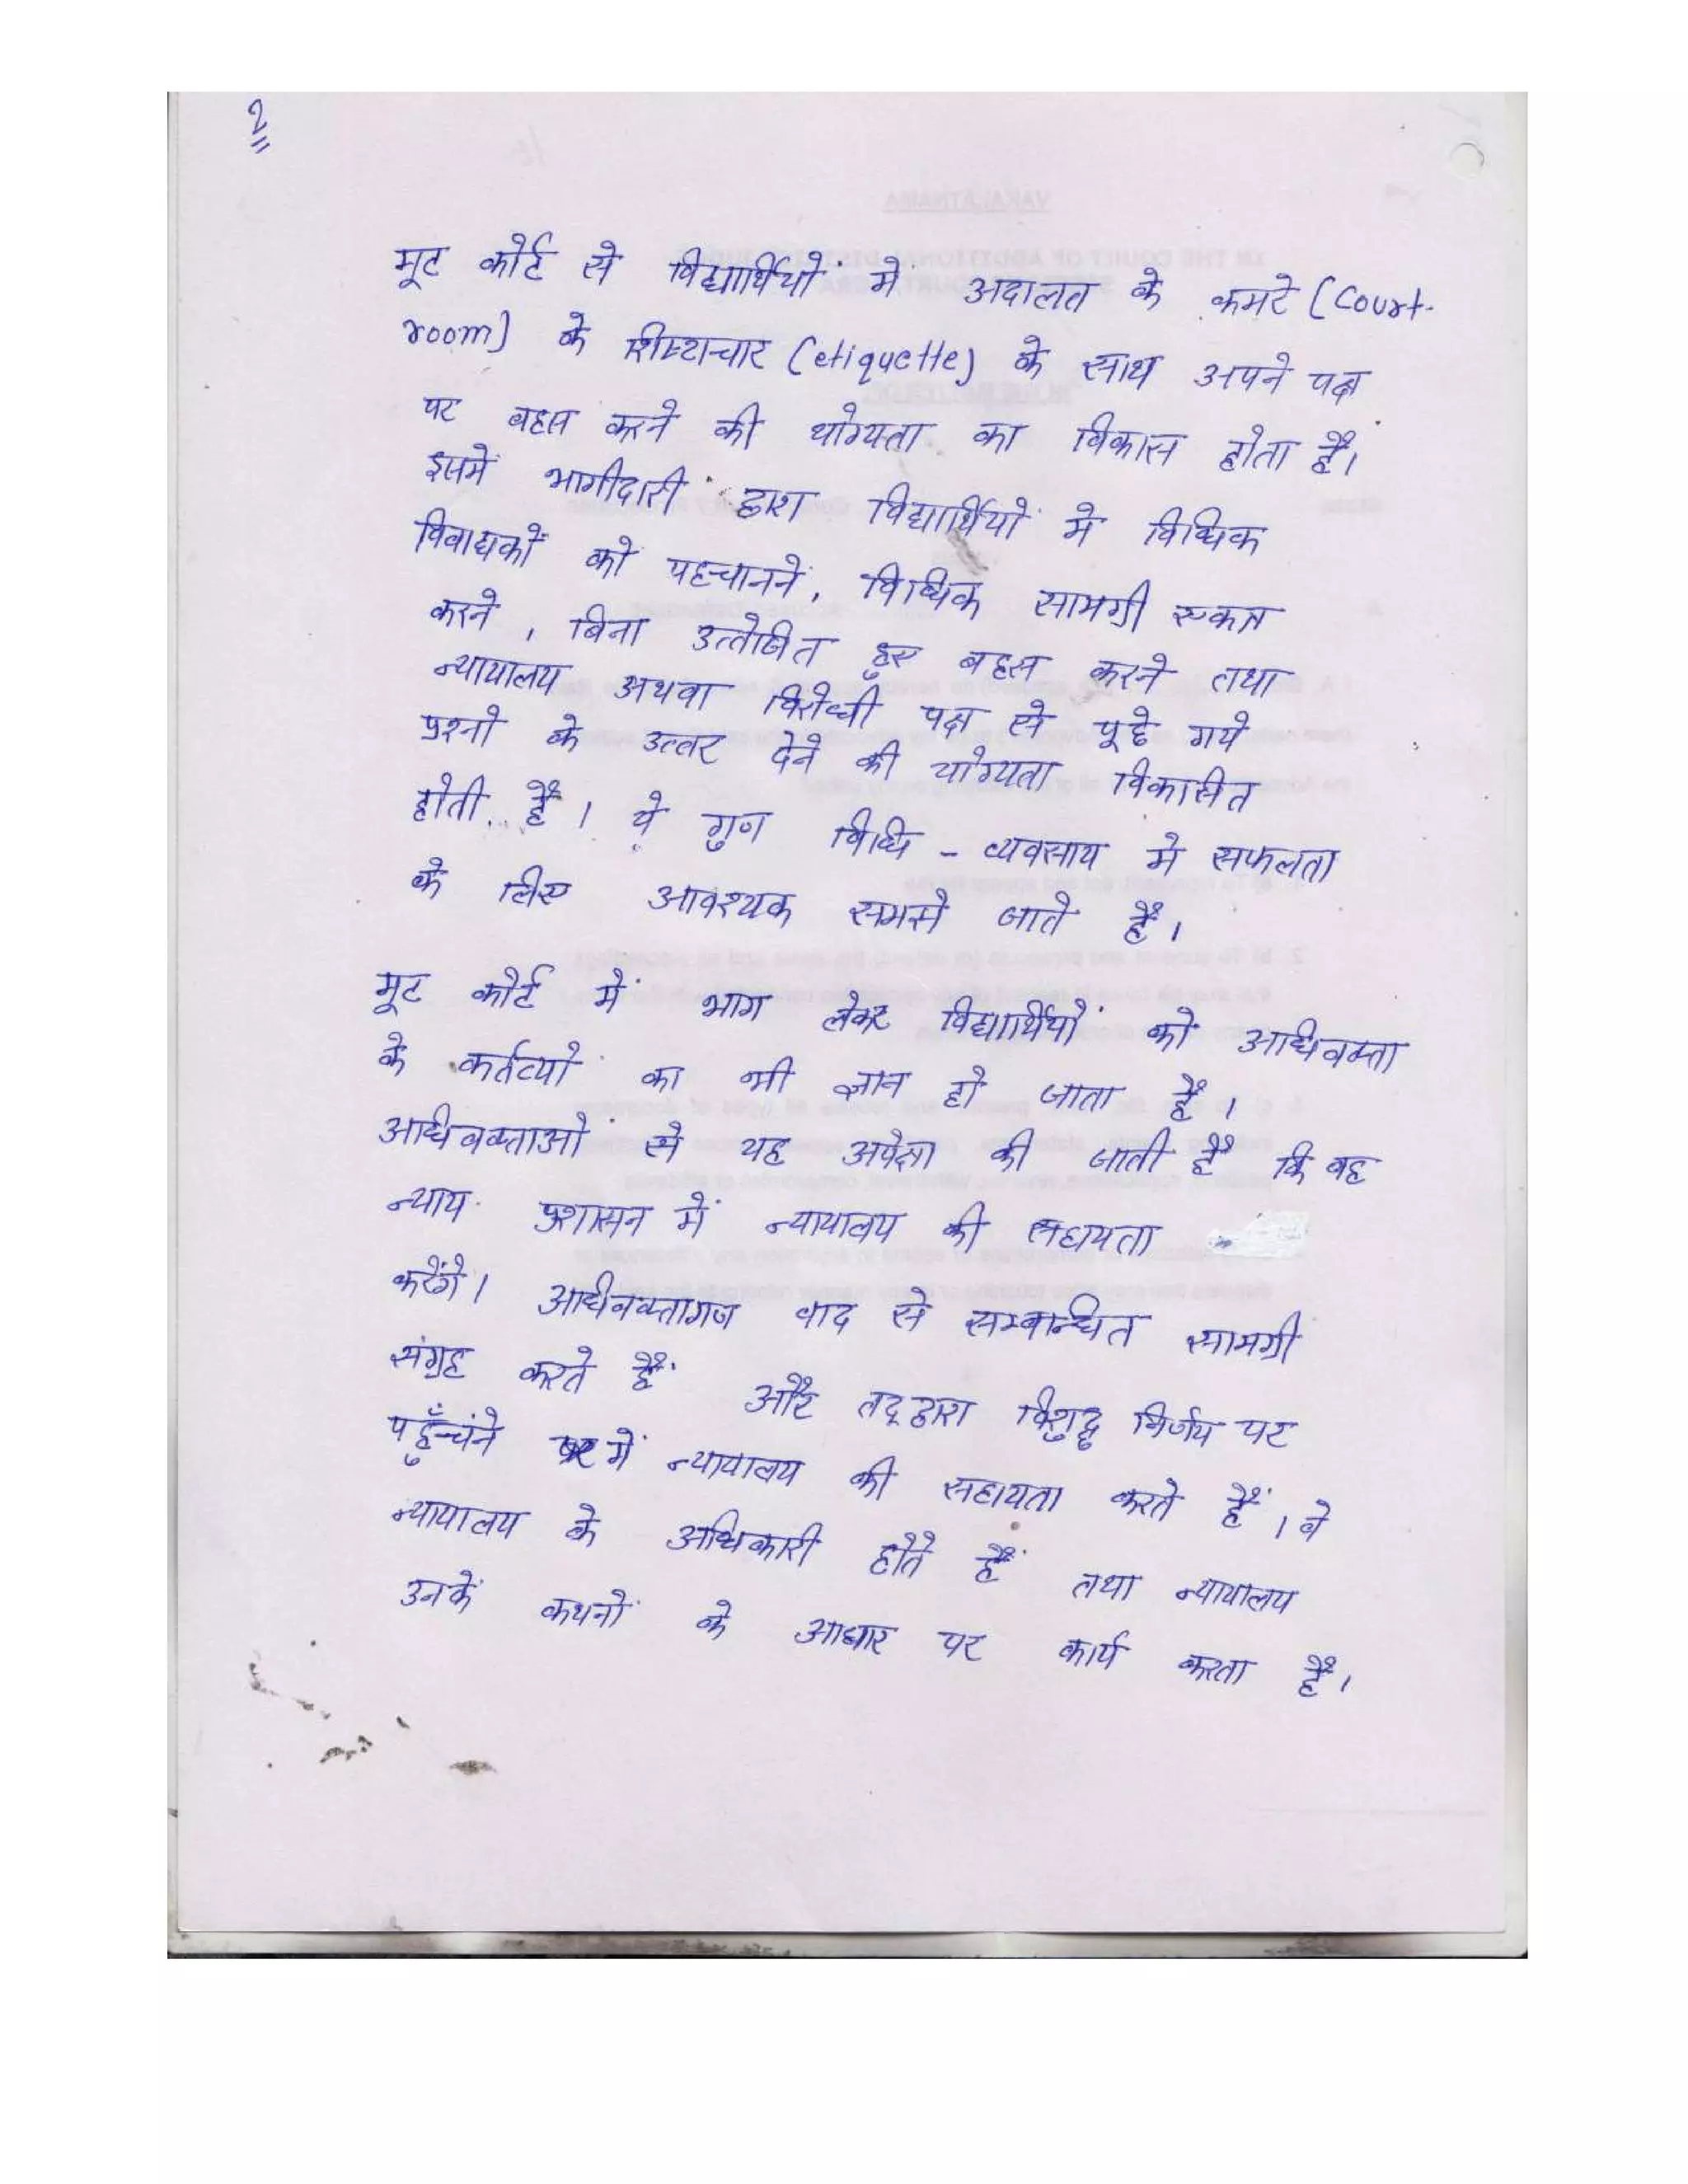 2
मूट कोर्ट से विद्यार्थियों में अदालत के कमरे (Court-
room) के शिष्टाचार (etiquette) के साथ अपने पक्ष
पर बहस करने की योग्यता का विकास होता है।
इसमें भागीदारी द्वारा विद्यार्थियों में विधिक
विवाद्यकों को पहचाननें, विधिक सामग्री एकत्र
करने, बिना उत्तेजित हुए बहस करने तथा
न्यायालय अथवा विरोधी पक्ष से पूछे गये
प्रश्नों के उत्तर देने की योग्यता विकसित
होती है। ये गुण विधि - व्यवसाय में सफलता
के लिए आवश्यक समझे जाते हैं।
मूट कोर्ट में भाग लेकर विद्यार्थियों को अधिवक्ता
के कर्तव्यों का भी ज्ञान हो जाता है।
अधिवक्ताओं से यह अपेक्षा की जाती है कि वह
न्याय प्रशासन में न्यायालय की सहायता
करेंगे। अधिवक्तागण वाद से सम्बन्धित सामग्री
संग्रह करते हैं और तद्द्वारा विशुद्ध निर्णय पर
पहुँचंने में न्यायालय की सहायता करते हैं। वे
न्यायालय के अधिकारी होते हैं तथा न्यायालय
उनकें कथनों के आधार पर कार्य करता है।